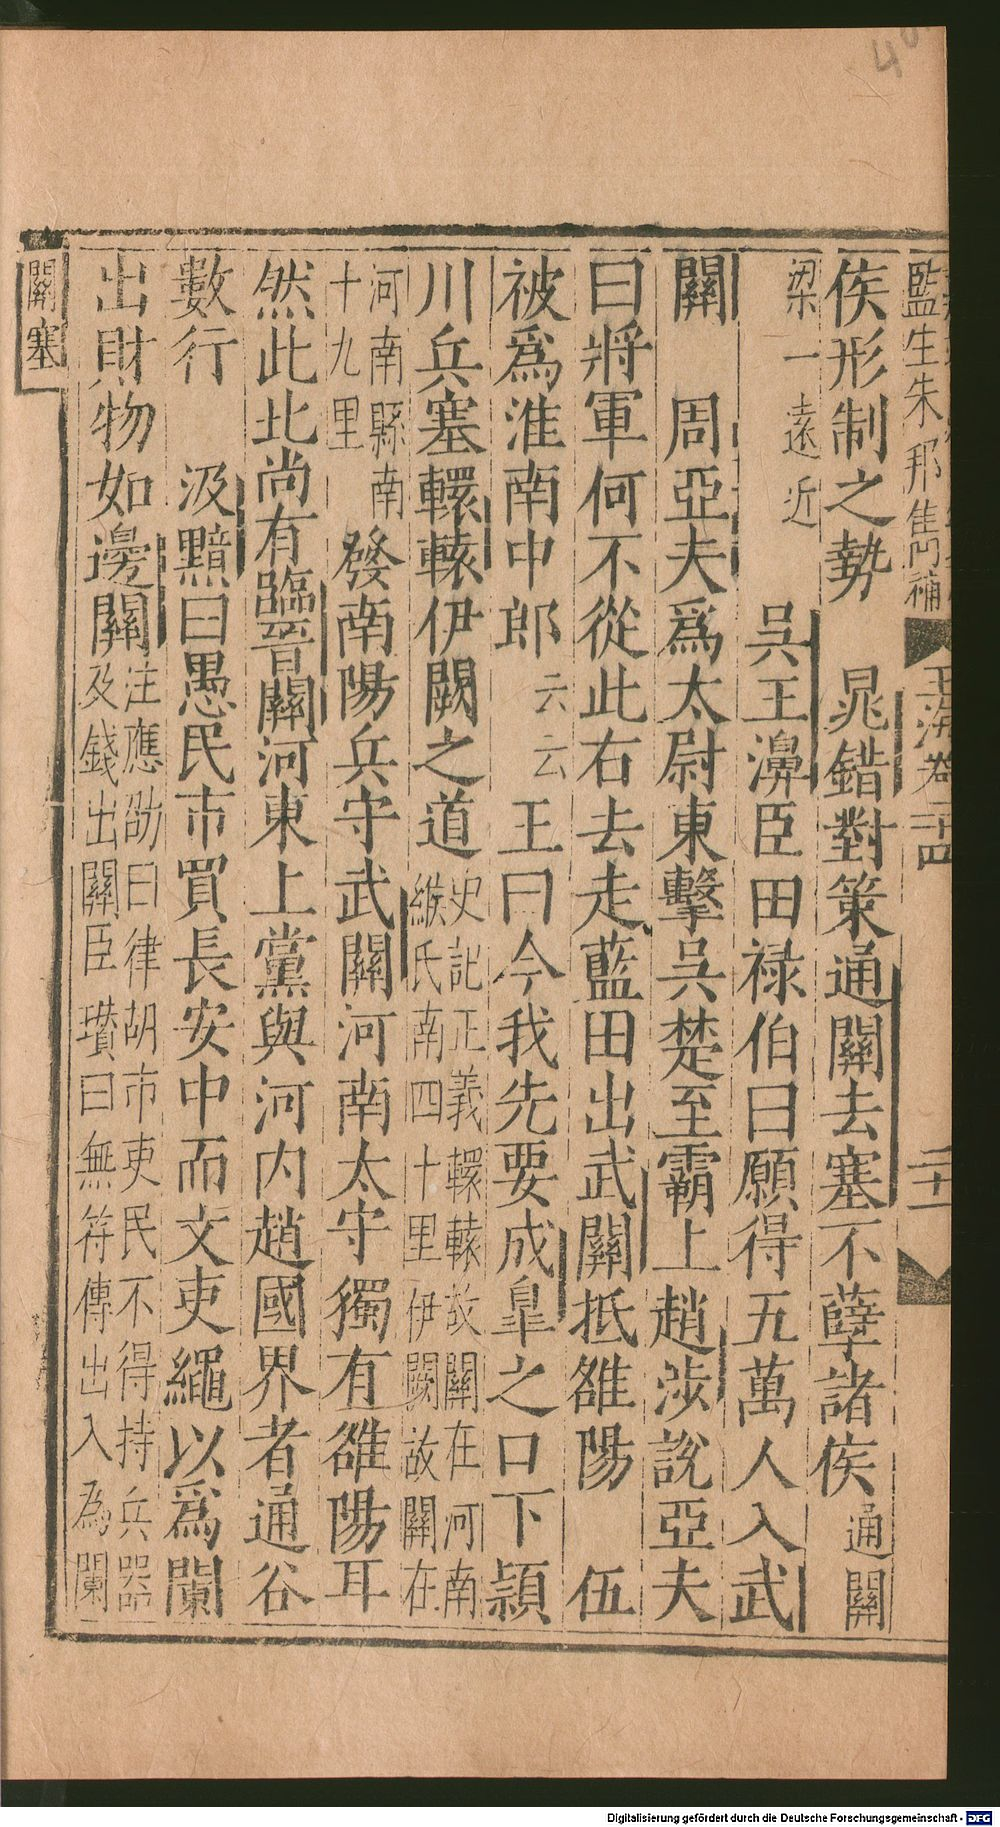 監生朱邦雋補
玉海卷二十四
二十一
侯形制之勢　晁錯對策通關去塞不孽諸侯通關
梁一遠近
吳王濞臣田禄伯曰願得五萬人入武
關　周亞夫爲太尉東擊吳楚至霸上趙涉說亞夫
曰將軍何不從此右去走藍田出武關抵雒陽　伍
被爲淮南中郎云云王曰今我先要成皐之口下潁
川兵塞轘轅伊闕之道史記正義轘轅故關在河南
緱氏南四十里伊闕故關在
河南縣南
十九里
發南陽兵守武關河南太守獨有雒陽耳
然此北尚有臨晉關河東上黨與河内趙國界者通谷
數行　汲黯曰愚民市買長安中而文吏繩以爲闌
出財物如邊關注應劭曰律胡市吏民不得持兵器
及錢出關臣瓚曰無符傳出入為闌
關塞
40
Digitalisierung gefördert durch die Deutsche Forschungsgemeinschaft - DFG